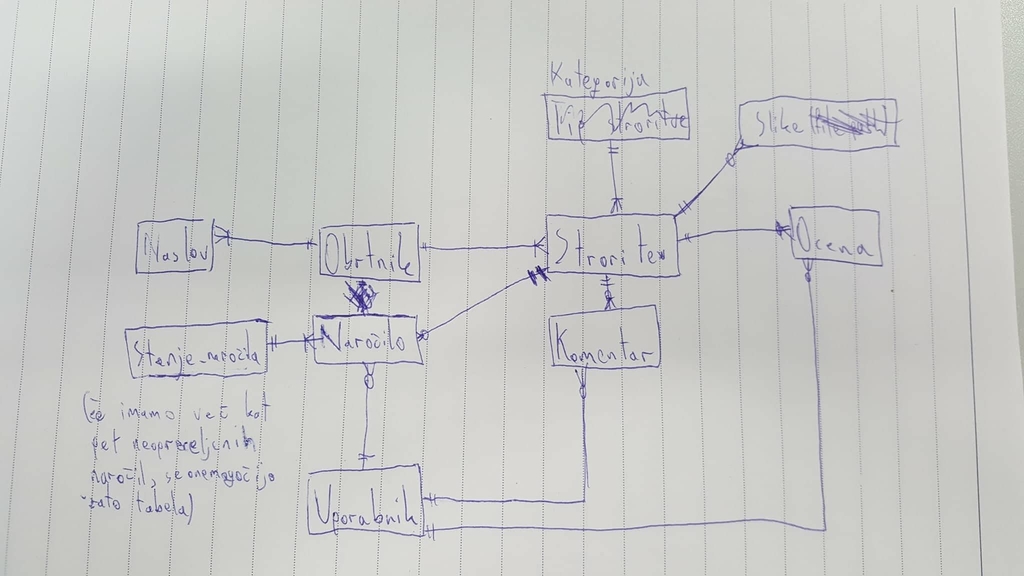 Kategorija
Slike
Naslov
Obrtnik
Storitev
Ocena
Stanje_naročila
Naročilo
Komentar
(če imamo več kot
pet
naročil, se onemogočijo
zato tabela)
Uporabnik